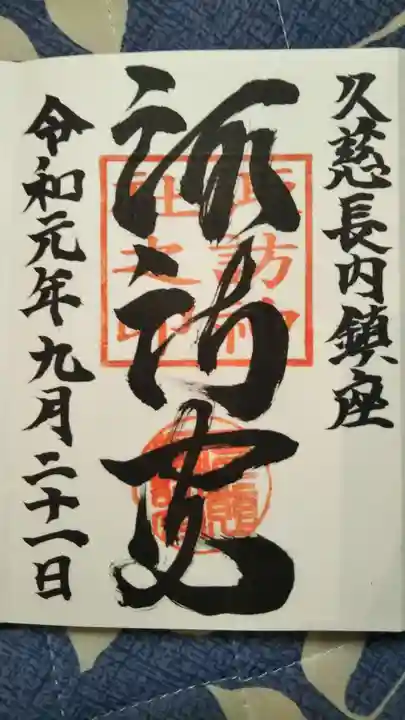 久慈長内鎮座
諏訪宮
諏訪神
社之印
令和元年九月二十一日